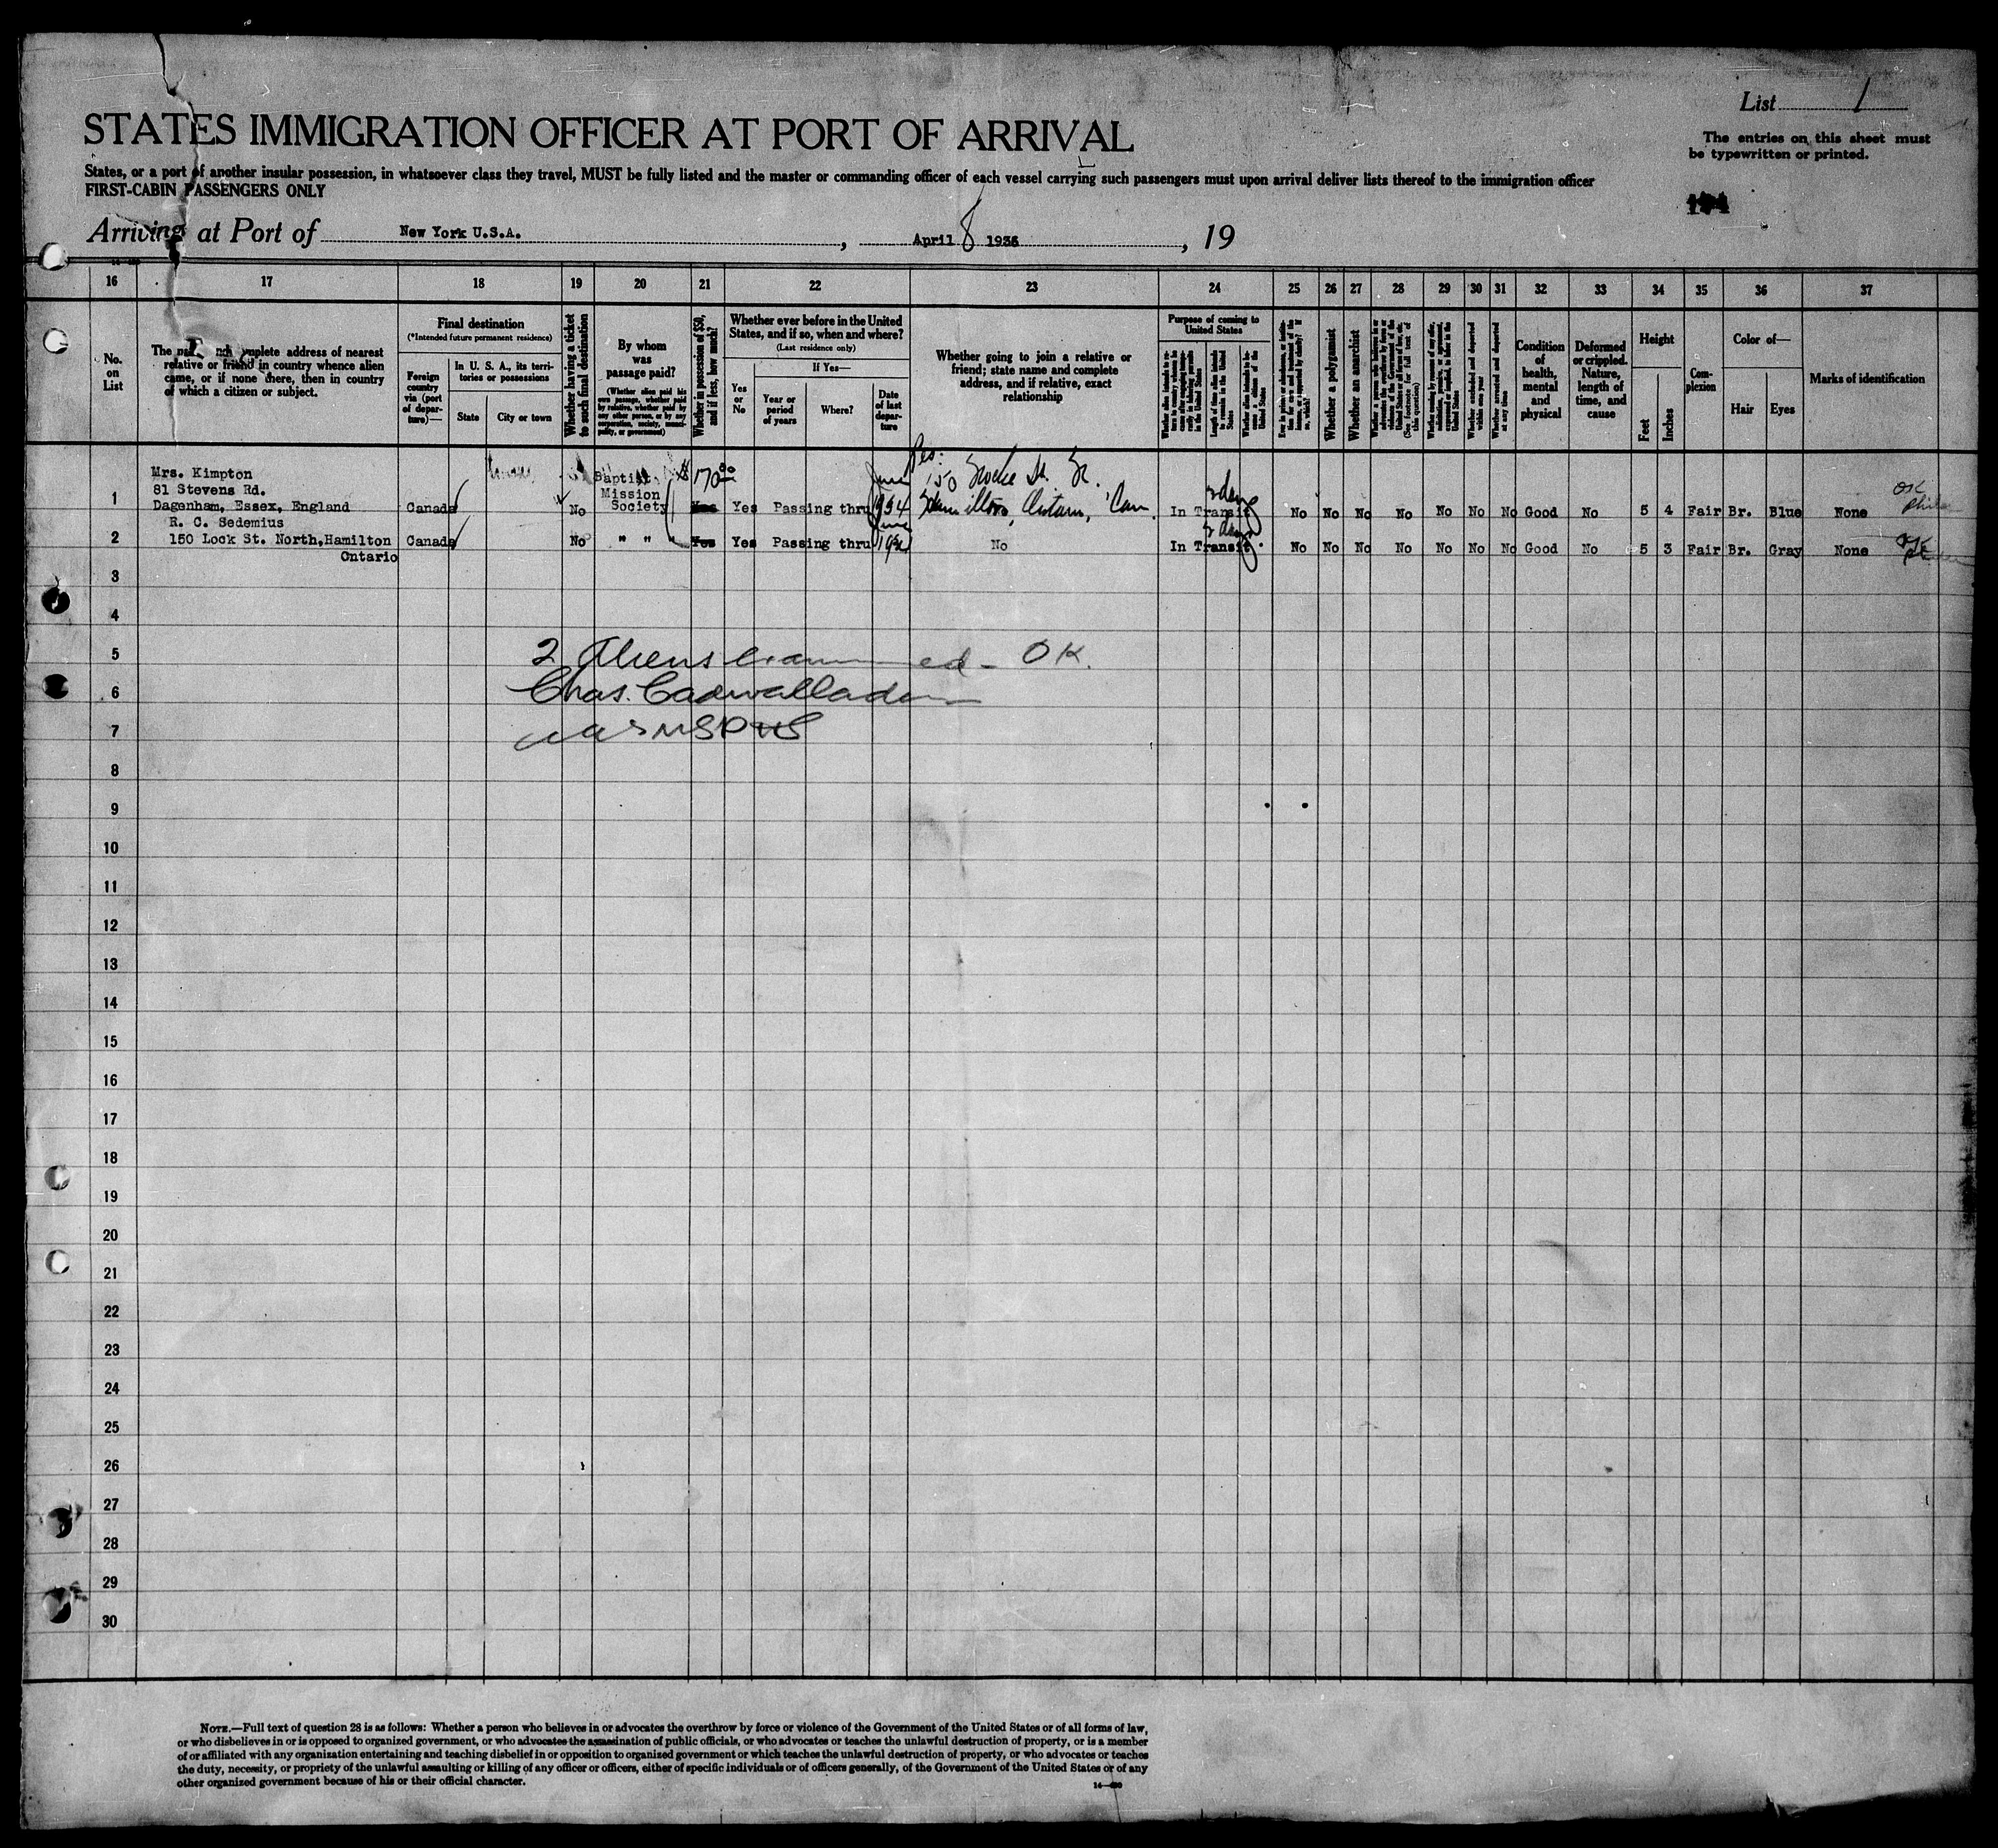 List 1
The entries on this sheet must
be typewritten or printed.
STATES IMMIGRATION OFFICER AT PORT OF ARRIVAL
States, or a port of another insular possession, in whatsoever class they travel, MUST be fully listed and the master or commanding officer of each vessel carrying such passengers must upon arrival deliver lists thereof to the immigration officer
FIRST-CABIN PASSENGERS ONLY
Arriving at Port of New York U.S.A., April 8 1936, 19
16 17 18 19 20 21 22 23 24 25 26 27 28 29 30 31 32 33 34 35 36 37
No.
on
List
The name and complete address of nearest
relative or friend in country whence alien
came, or if none there, then in country
of which a citizen or subject.
Final destination
(*Intended future permanent residence)
Foreign
country
via (port
of depar-
ture)—
In U. S. A., its terri-
tories or possessions
State
City or town
Whether having a ticket
to such final destination
By whom
was
passage paid?
(Whether alien paid his
own passage, whether paid
by relative, whether paid by
any other person, or by any
corporation, society, munici-
pality, or government)
Whether in possession of $50,
and if less, how much?
Whether ever before in the United
States, and if so, when and where?
(Last residence only)
Yes
or
No
If Yes—
Year or
period
of years
Where?
Date
of last
depar-
ture
Whether going to join a relative or
friend; state name and complete
address, and if relative, exact
relationship
Purpose of coming to
United States
Length of time alien intends
to remain in the United
States
Whether a polygamist
Whether an anarchist
(See footnote for full text of
this question)
Whether arrested and deported
at any time
Condition
of
health,
mental
and
physical
Deformed
or crippled.
Nature,
length of
time, and
cause
Height
Feet
Inches
Com-
plexion
Color of—
Hair
Eyes
Marks of identification
Mrs. Kimpton
81 Stevens Rd.
1 Dagenham, Essex, England Canada No Baptist Mission Society $170.00 Yes Yes Passing thru June 1934 Res: 150 Locke St. N. Hamilton, Ontario, Can. In Transit 2 days No No No No No No No Good No 5 4 Fair Br. Blue None OK
R. C. Sedemius
2 150 Lock St. North, Hamilton Canada No " " " Yes Yes Passing thru June No In Transit 2 days No No No No No No No Good No 5 3 Fair Br. Gray None OK
Ontario
3
4
5 2 Aliens examined - OK.
6 Chas. Cadwallader
7 USPHS
8
9
10
11
12
13
14
15
16
17
18
19
20
21
22
23
24
25
26
27
28
29
30
NOTE.—Full text of question 28 is as follows: Whether a person who believes in or advocates the overthrow by force or violence of the Government of the United States or of all forms of law,
or who disbelieves in or is opposed to organized government, or who advocates the assassination of public officials, or who advocates or teaches the unlawful destruction of property, or is a member
of or affiliated with any organization entertaining and teaching disbelief in or opposition to organized government or which teaches the unlawful destruction of property, or who advocates or teaches
the duty, necessity, or propriety of the unlawful assaulting or killing of any officer or officers, either of specific individuals or of officers generally, of the Government of the United States or of any
other organized government because of his or their official character.